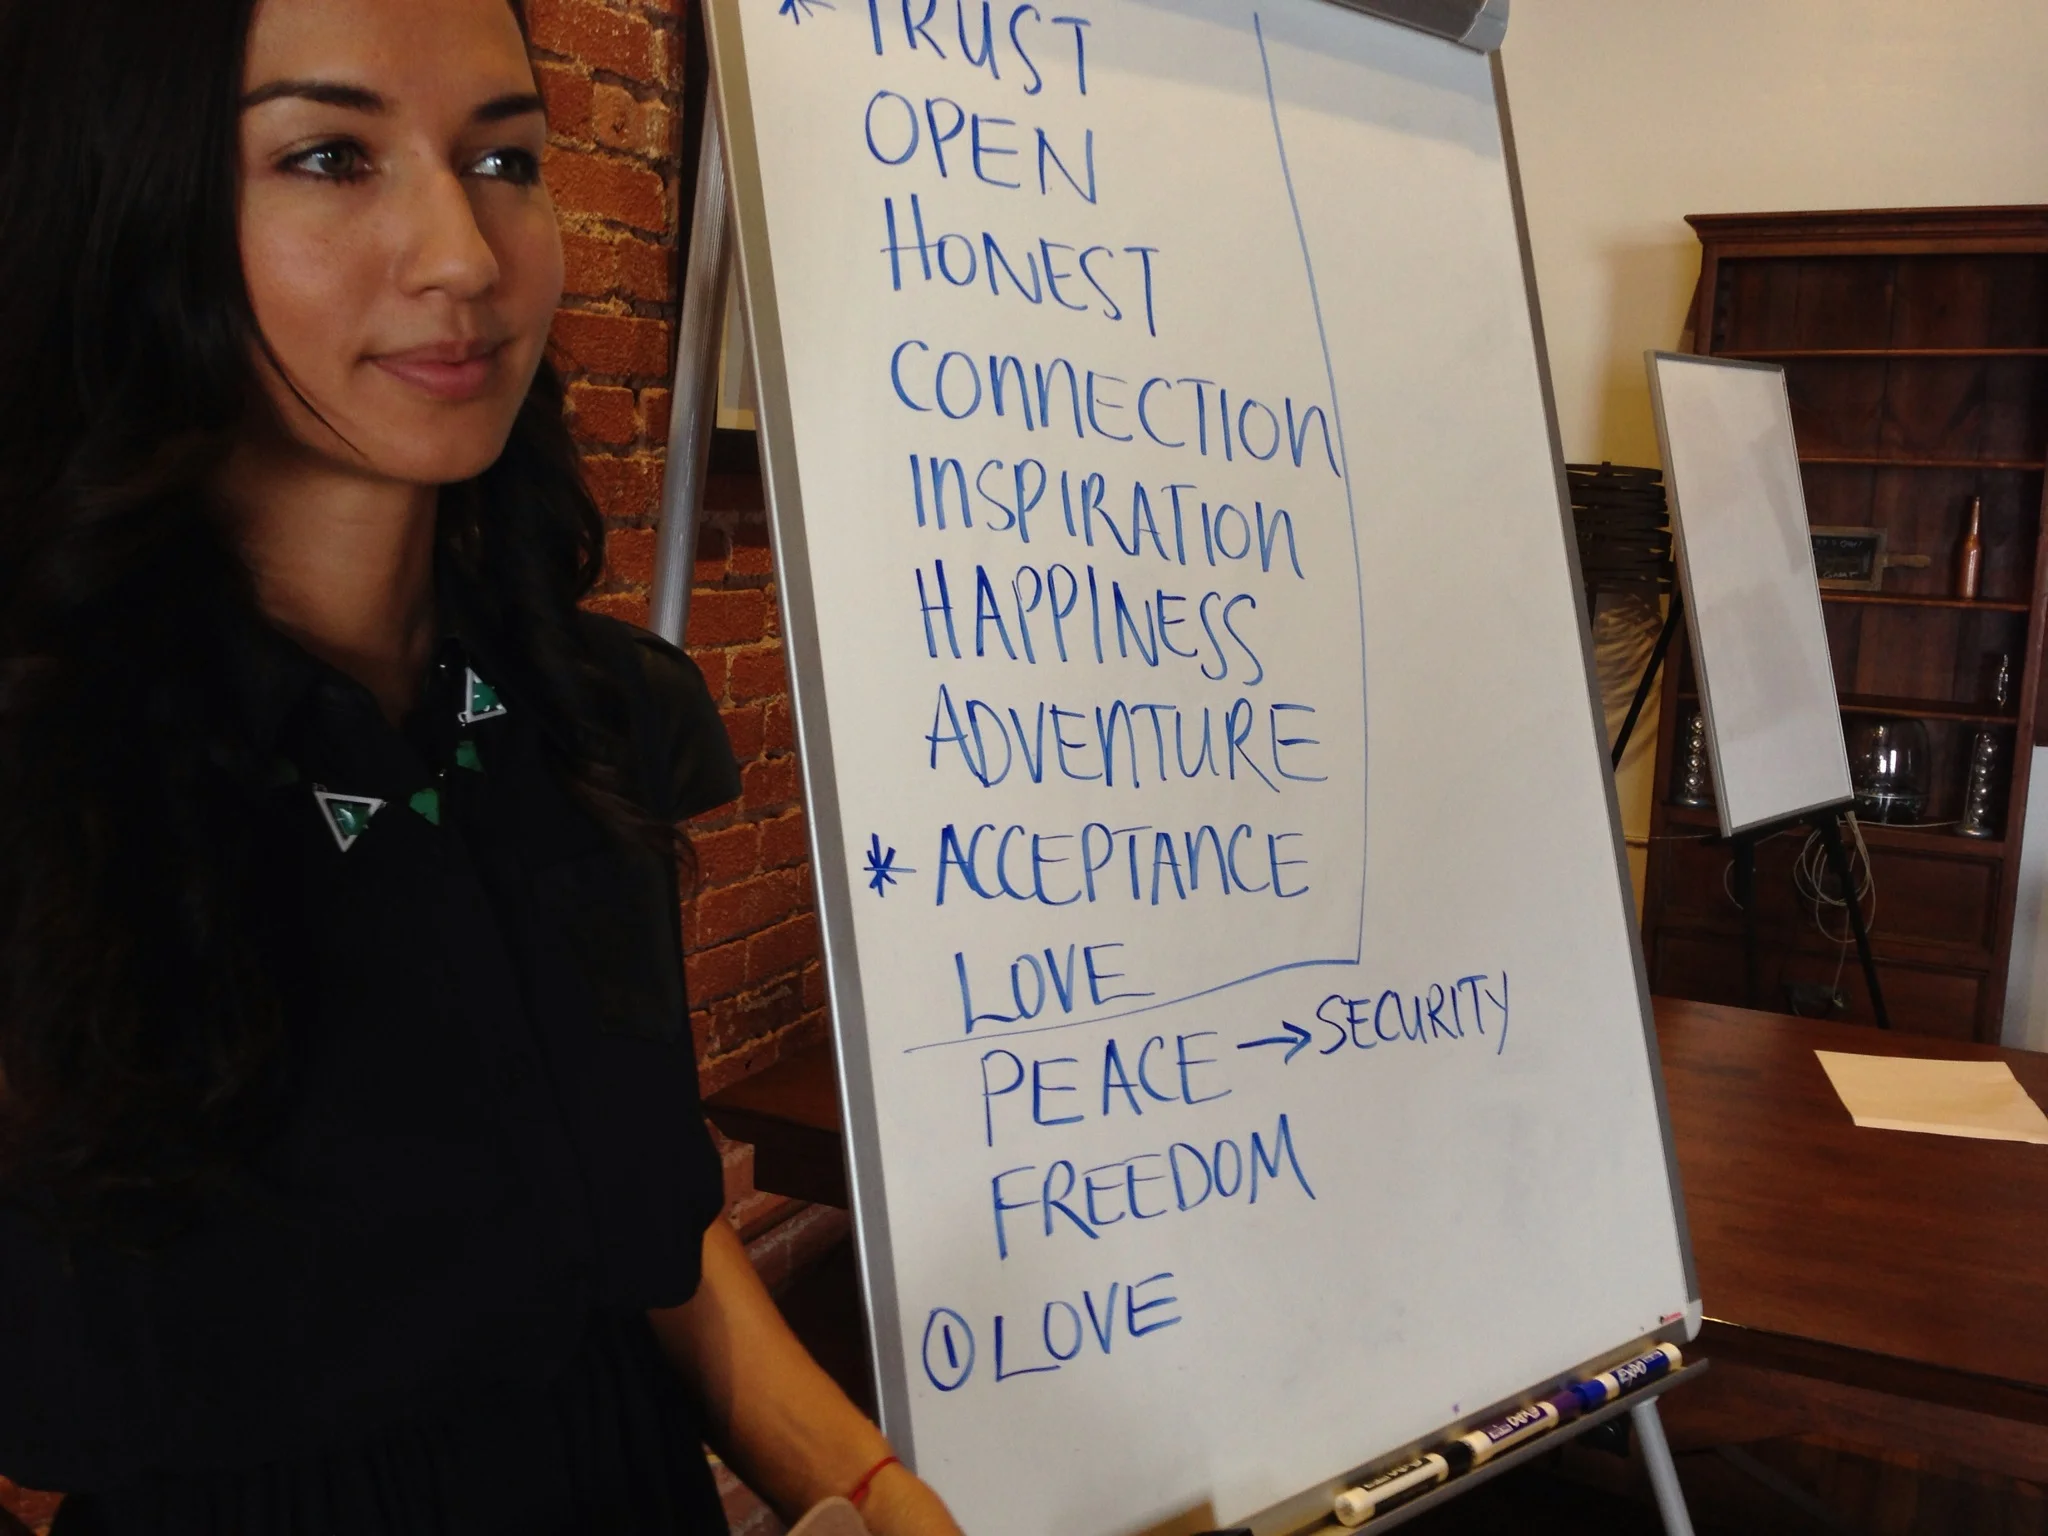 * TRUST
OPEN
HONEST
CONNECTION
INSPIRATION
HAPPINESS
ADVENTURE
* ACCEPTANCE
LOVE
PEACE → SECURITY
FREEDOM
① LOVE
EXPO